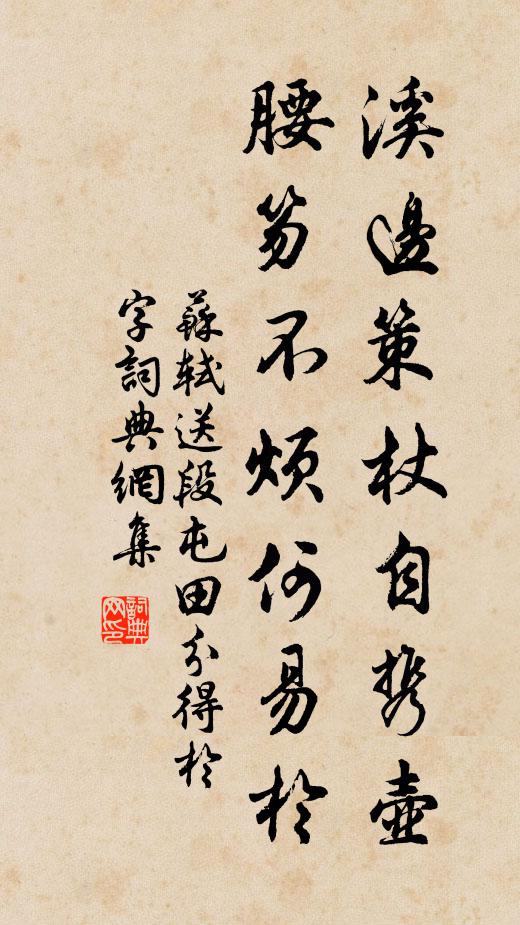 溪邊策杖自携壺
腰笏不煩何易於
蘇軾送段屯田分得於
字詞典網集
詞典網印